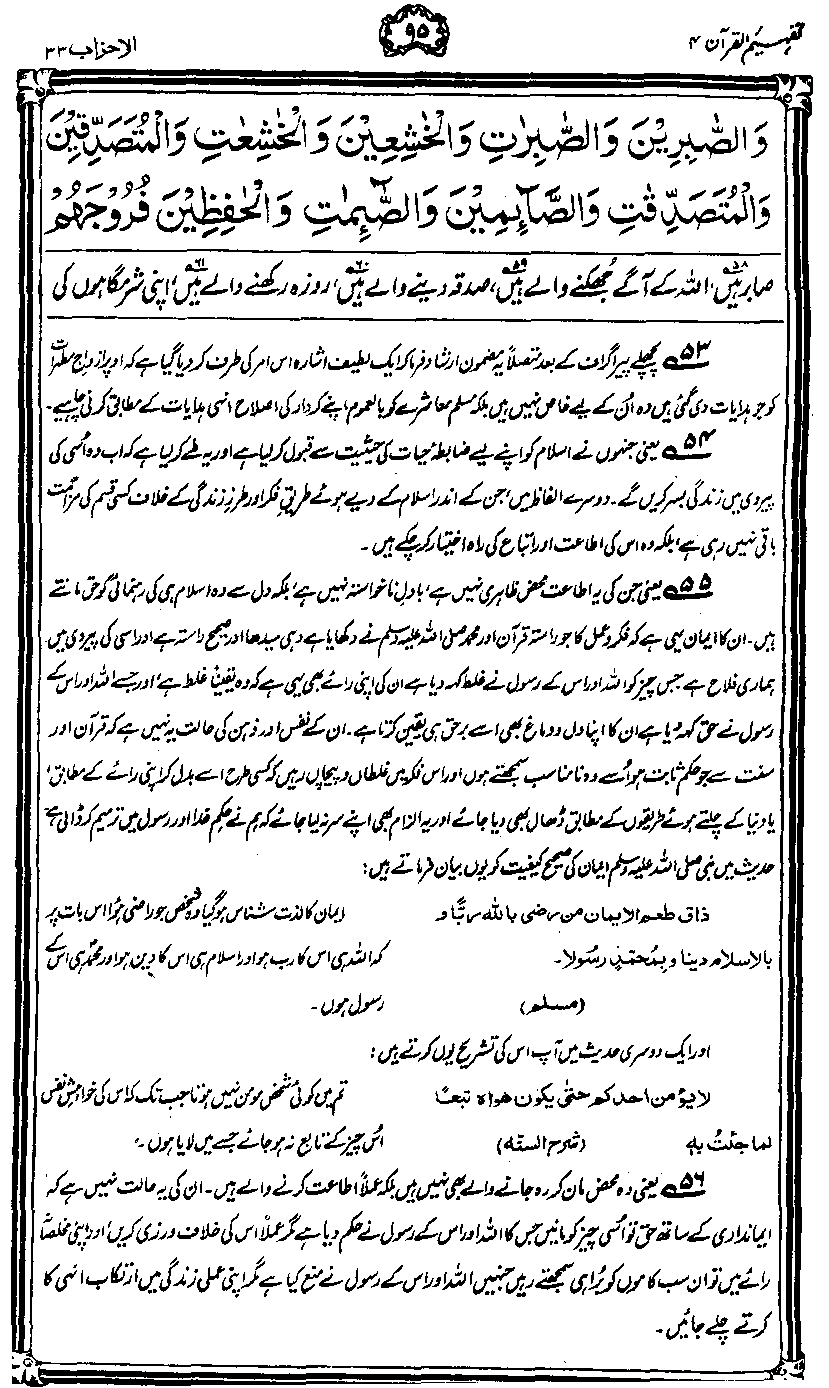 تفہیم القرآن ۴
۹۵
الاحزاب ۳۳
وَالصّٰبِرِیْنَ وَالصّٰبِرٰتِ وَالْخٰشِعِیْنَ وَالْخٰشِعٰتِ وَالْمُتَصَدِّقِیْنَ
وَالْمُتَصَدِّقٰتِ وَالصَّآئِمِیْنَ وَالصّٰٓئِمٰتِ وَالْحٰفِظِیْنَ فُرُوْجَهُمْ
صابر ہیں،۵۸ اللہ کے آگے جھکنے والے ہیں،۵۹ صدقہ دینے والے ہیں،۶۰ روزہ رکھنے والے ہیں،۶۱ اپنی شرمگاہوں کی
۵۳ پچھلے پیراگراف کے بعد متصلاً یہ مضمون ارشاد فرما کر ایک لطیف اشارہ اس امر کی طرف کر دیا گیا ہے کہ اوپر ازواجِ مطہرات
کو جو ہدایات دی گئی ہیں وہ اُن کے لیے خاص نہیں ہیں بلکہ مسلم معاشرے کو بالعموم اپنے کردار کی اصلاح انہی ہدایات کے مطابق کرنی چاہیے۔
۵۴ یعنی جنہوں نے اسلام کو اپنے لیے ضابطۂ حیات کی حیثیت سے قبول کر لیا ہے اور یہ طے کر لیا ہے کہ اب وہ اُسی کی
پیروی میں زندگی بسر کریں گے۔ دوسرے الفاظ میں، جن کے اندر اسلام کے دیے ہوئے طریقِ فکر اور طرزِ زندگی کے خلاف کسی قسم کی مزاحمت
باقی نہیں رہی ہے، بلکہ وہ اس کی اطاعت اور اتباع کی راہ اختیار کر چکے ہیں۔
۵۵ یعنی جن کی یہ اطاعت محض ظاہری نہیں ہے، بادلِ ناخواستہ نہیں ہے، بلکہ دل سے وہ اسلام ہی کی رہنمائی کو حق مانتے
ہیں۔ ان کا ایمان یہی ہے کہ فکر و عمل کا جو راستہ قرآن اور محمد صلی اللہ علیہ وسلم نے دکھایا ہے وہی سیدھا اور صحیح راستہ ہے اور اسی کی پیروی میں
ہماری فلاح ہے جس چیز کو اللہ اور اس کے رسول نے غلط کہہ دیا ہے ان کی اپنی رائے بھی یہی ہے کہ وہ یقیناً غلط ہے، اور جسے اللہ اور اس کے
رسول نے حق کہہ دیا ہے ان کا اپنا دل و دماغ بھی اسے برحق ہی یقین کرتا ہے۔ ان کے نفس اور ذہن کی حالت یہ نہیں ہے کہ قرآن اور
سنت سے جو حکم ثابت ہو اُسے وہ نامناسب سمجھتے ہوں اور اس فکر میں غلطاں و پیچاں رہیں کہ کسی طرح اسے بدل کر اپنی رائے کے مطابق،
یا دنیا کے چلتے ہوئے طریقوں کے مطابق ڈھال بھی دیا جائے اور یہ الزام بھی اپنے سر نہ لیا جائے کہ ہم نے حکمِ خدا اور رسول میں ترمیم کر ڈالی ہے۔
حدیث میں نبی صلی اللہ علیہ وسلم ایمان کی صحیح کیفیت کو یوں بیان فرماتے ہیں:
ذاق طعم الایمان من رضی باللہ ربًّا و ایمان کا لذت شناس ہو گیا وہ شخص جو راضی ہوا اس بات پر
بالاسلام دینا و بمحمّدٍ رسُولا۔ کہ اللہ ہی اس کا رب ہو اور اسلام ہی اس کا دین ہو اور محمدؐ ہی اس کے
(مسلم) رسول ہوں۔
اور ایک دوسری حدیث میں آپ اس کی تشریح یوں کرتے ہیں:
لا یؤمن احدکم حتّٰی یکون ھواہ تبعًا تم میں کوئی شخص مومن نہیں ہوتا جب تک کہ اس کی خواہشِ نفس
لما جئتُ بہٖ (شرح السنّہ) اُس چیز کے تابع نہ ہو جائے جسے میں لایا ہوں۔
۵۶ یعنی وہ محض مان کر رہ جانے والے بھی نہیں ہیں بلکہ عملاً اطاعت کرنے والے ہیں۔ ان کی یہ حالت نہیں ہے کہ
ایمانداری کے ساتھ حق تو اُسی چیز کو مانیں جس کا اللہ اور اس کے رسول نے حکم دیا ہے مگر عملاً اس کی خلاف ورزی کریں، اور اپنی مخلصانہ
رائے میں تو ان سب کاموں کو بُرا ہی سمجھتے رہیں جنہیں اللہ اور اس کے رسول نے منع کیا ہے مگر اپنی عملی زندگی میں ارتکاب انہی کا
کرتے چلے جائیں۔